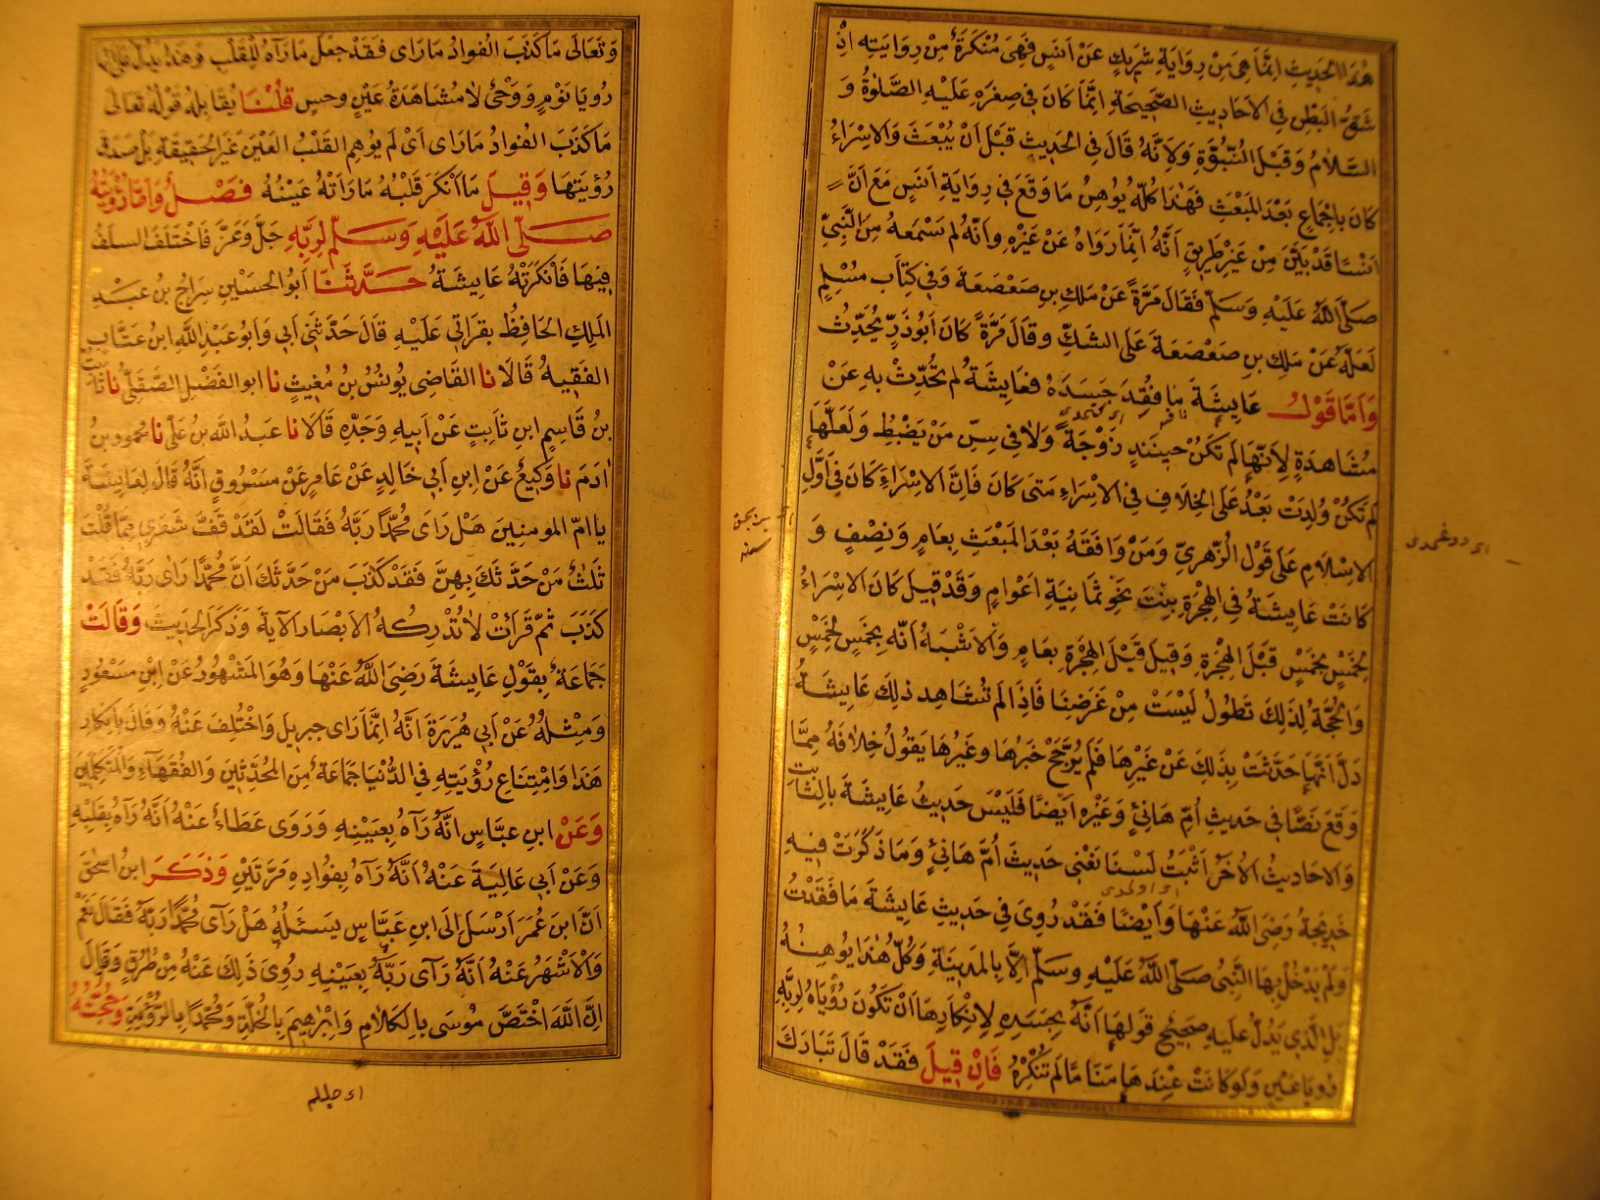 هذا الحديث انما هى من رواية شريك عن انس فهى منكرة من روايته اذ
شق البطن فى الاحاديث الصحيحة انما كان فى صغره عليه الصلوة و
السلام وقبل النبوة ولانه قال فى الحديث قبل ان يبعث والاسراء
كان باجماع بعد المبعث فهذا كله يوهن ما وقع فى رواية انس مع انّ
انسا قد بين من غير طريق انه انما رواه عن غيره وانه لم يسمعه من النبى
صلى الله عليه وسلم فقال مرة عن ملك بن صعصعة وفى كتاب مسلم
لعله عن ملك بن صعصعة على الشك وقال مرة كان ابو ذر يحدث
واما قول عايشة ما فقد جسده فعايشة لم تحدث به عن
مشاهدة لانها لم تكن حينئذ زوجة ولا فى سن من يضبط ولعلها
لم تكن ولدت بعد على الخلاف فى الاسراء متى كان فان الاسراء كان فى اول
الاسلام على قول الزهرى ومن وافقه بعد المبعث بعام ونصف و
كانت عايشة فى الهجرة بنت نحو ثمانية اعوام وقد قيل كان الاسراء
لخمس قبل الهجرة وقيل قبل الهجرة بعام والاشبه انه بخمس
والحجة لذلك تطول ليست من غرضنا فاذا لم تشاهد ذلك عايشة
دل انها حدثت بذلك عن غيرها فلم يرجح خبرها وغيرها يقول خلافه مما
وقع نصا فى حديث ام هانئ وغيره ايضا فليس حديث عايشة بالثابت
والاحاديث الاخر اثبت لسنا نعنى حديث ام هانئ وما ذكرت فيه
خديجة رضى الله عنها وايضا فقد روى فى حديث عايشة ما فقدت
ولم يدخل بها النبى صلى الله عليه وسلم الا بالمدينة وكل هذا يوهنه
بل الذى يدل عليه صحيح قولها انه بجسده لانكارها ان تكون رؤياه لربه
رؤيا عين ولو كانت عندها مناما لم تنكره فان قيل فقد قال تبارك
وتعالى ما كذب الفواد ما راى فقد جعل ما رآه للقلب وهذا يدل على انها
رويا نوم ووحى لا مشاهدة عين وحس قلنا يقابله قوله تعالى
ما كذب الفواد ما راى اى لم يوهم القلب العين غير الحقيقة بل صدق
رؤيتها وقيل ما انكر قلبه ما راته عينه فصل واما رؤيته
صلى الله عليه وسلم لربه جل وعز فاختلف السلف
فيها فانكرته عايشة حدثنا ابو الحسين سراج بن عبد
الملك الحافظ بقراتى عليه قال حدثنى ابى وابو عبد الله ابن عتاب
الفقيه قالا نا القاضى يونس بن مغيث نا ابو الفضل الصقلى نا ثابت
بن قاسم ابن ثابت عن ابيه وجده قالا نا عبد الله بن على نا محمود بن
ادم نا وكيع عن ابن ابى خالد عن عامر عن مسروق انه قال لعايشة
يا ام المومنين هل راى محمد ربه فقالت لقد قف شعرى مما قلت
ثلث من حدثك بهن فقد كذب من حدثك ان محمدا راى ربه فقد
كذب ثم قرات لا تدركه الابصار الآية وذكر الحديث وقالت
جماعة بقول عايشة رضى الله عنها وهو المشهور عن ابن مسعود
ومثله عن ابى هريرة انه انما راى جبريل واختلف عنه وقال بانكار
هذا وامتناع رؤيته فى الدنيا جماعة من المحدثين والفقهاء والمتكلمين
وعن ابن عباس انه رآه بعينيه وروى عطاء عنه انه رآه بقلبه
وعن ابى عالية عنه انه رآه بفواده مرتين وذكر ابن اسحق
ان ابن عمر ارسل الى ابن عباس يسئله هل رآى محمد ربه فقال نعم
والاشهر عنه انه رآى ربه بعينيه روى ذلك عنه من طرق وقال
ان الله اختص موسى بالكلام وابرهيم بالخلة ومحمدا بالرؤية وحجته